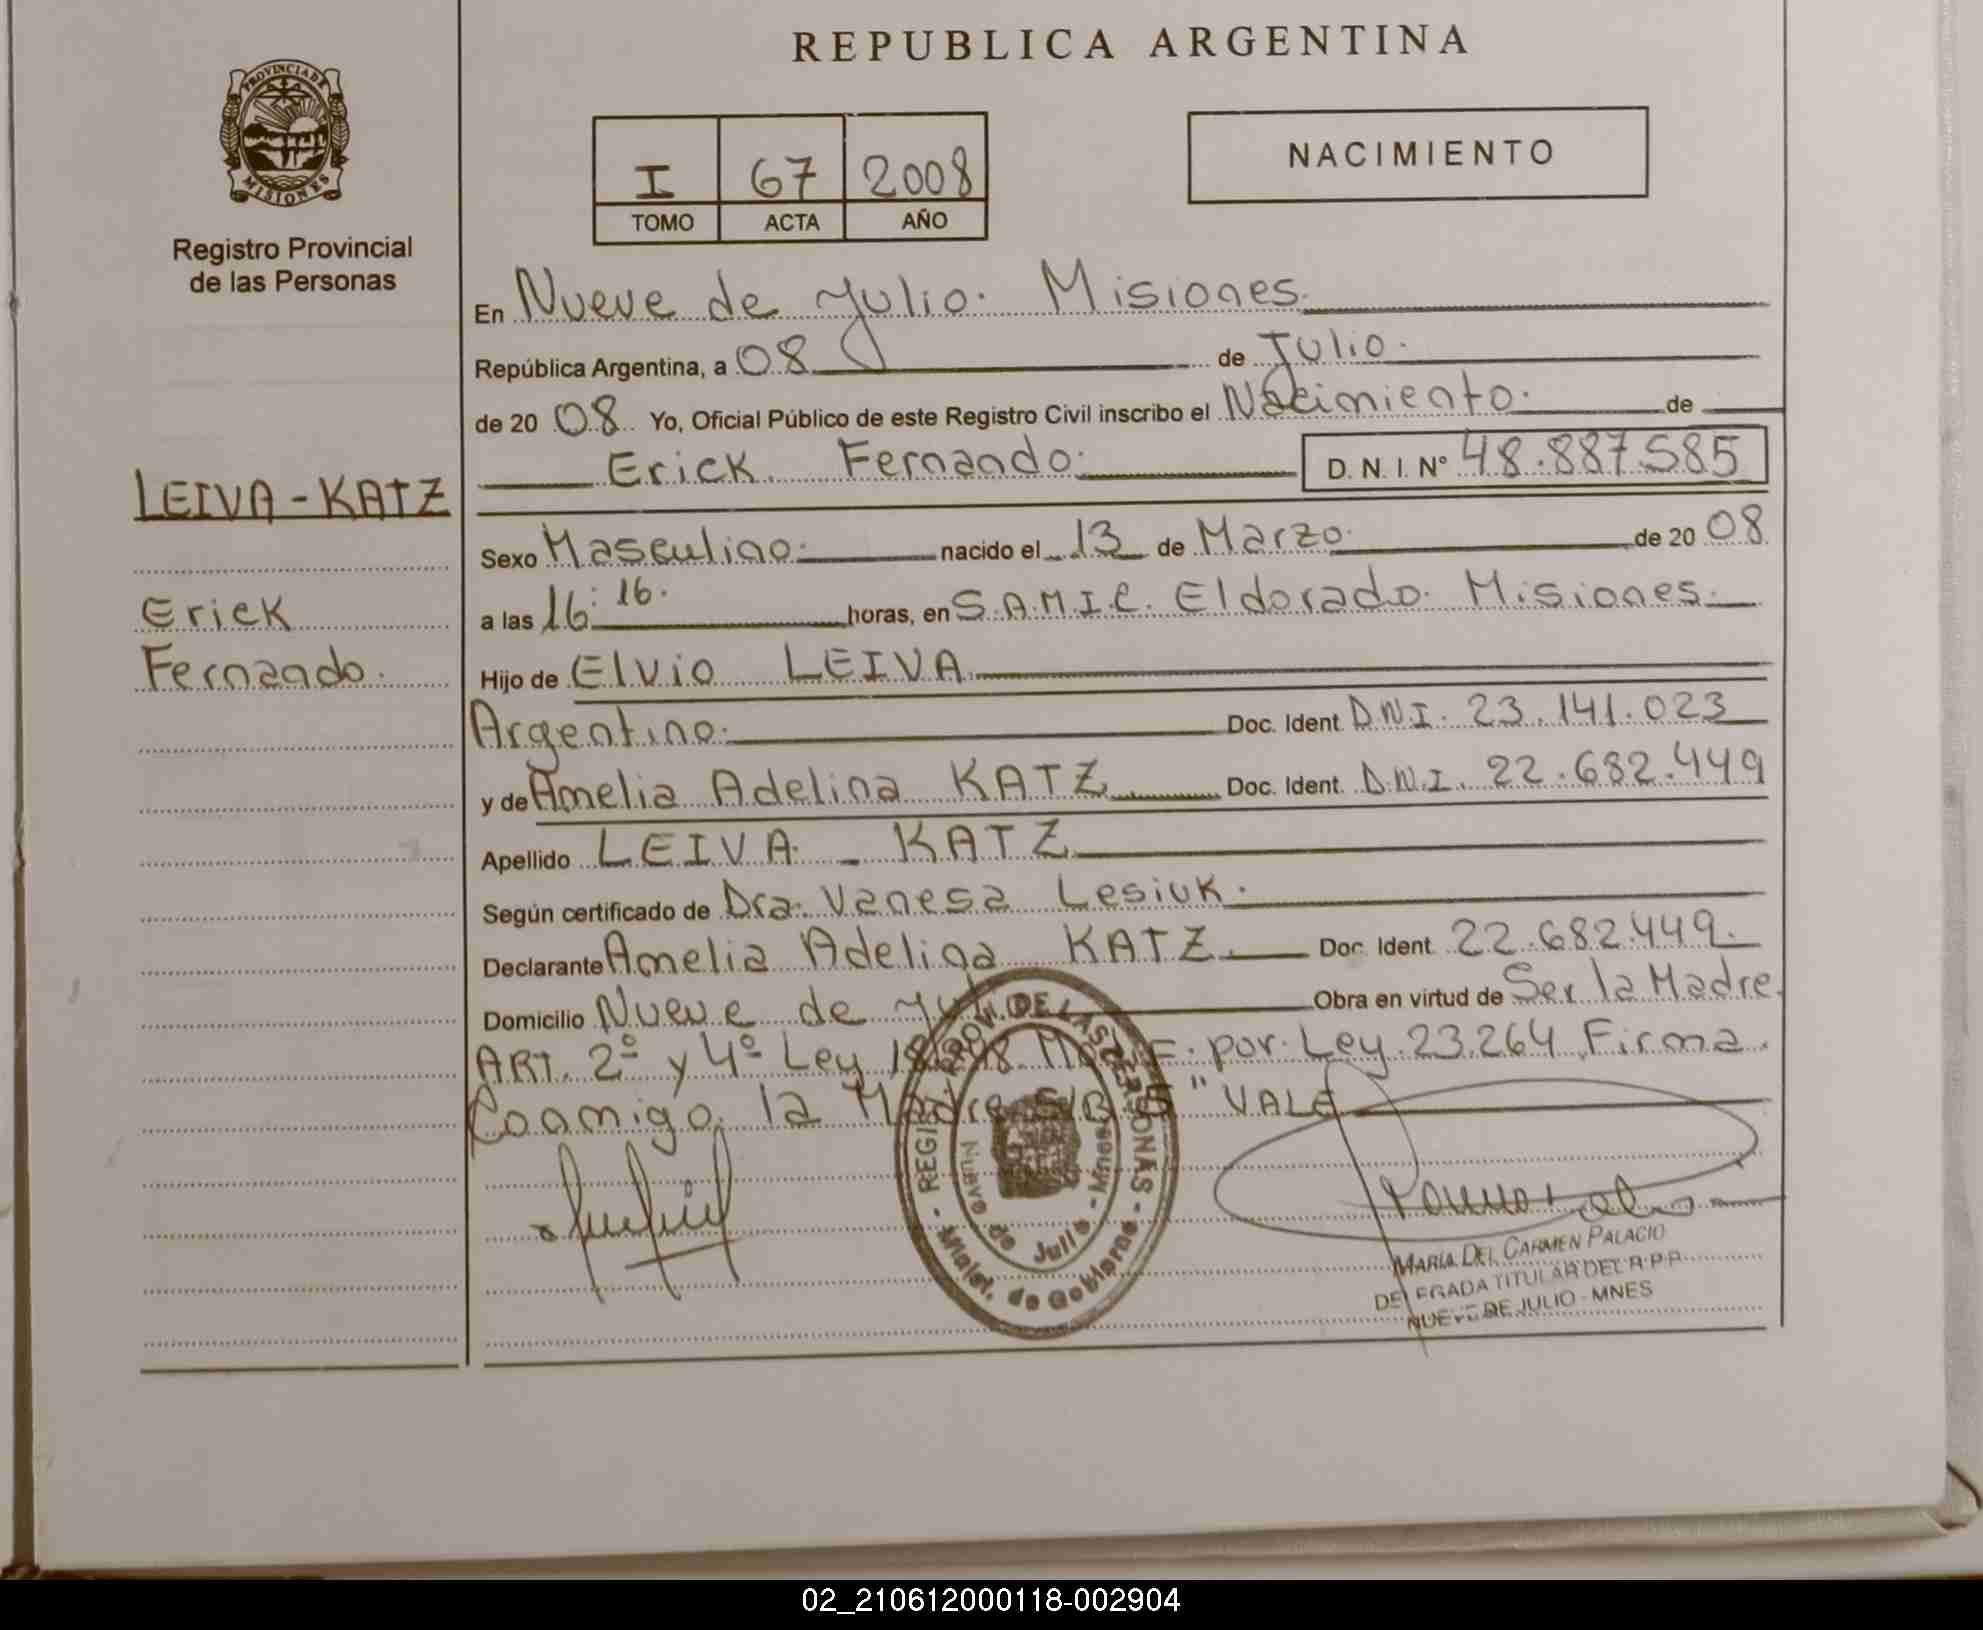 REPUBLICA ARGENTINA
PROVINCIA DE
MISIONES
Registro Provincial
de las Personas
I 67 2008
TOMO ACTA AÑO
NACIMIENTO
En Nueve de Julio. Misiones.
República Argentina, a 08 de Julio.
de 20 08 Yo, Oficial Público de este Registro Civil inscribo el Nacimiento. de
Erick Fernando. D. N. I. Nº 48.887.585
LEIVA - KATZ
Erick
Fernando.
Sexo Masculino. nacido el 13 de Marzo. de 20 08
a las 16:16. horas, en S.A.M.I.C. Eldorado. Misiones.
Hijo de Elvio LEIVA
Argentino. Doc. Ident. D.N.I. 23.141.023
y de Amelia Adelina KATZ Doc. Ident. D.N.I. 22.682.449
Apellido LEIVA - KATZ
Según certificado de Dra. Vanesa Lesiuk.
Declarante Amelia Adelina KATZ. Doc. Ident. 22.682.449.
Domicilio Nueve de Obra en virtud de Ser la Madre.
ART. 2º y 4º Ley por Ley 23.264 Firma.
Conmigo. la Madre "VALE
REGIST. PROV. DE LAS PERSONAS - Minist. de Gobierno -
Nueve de Julio - Mnes
MARIA DEL CARMEN PALACIO
DELEGADA TITULAR DEL R.P.P.
NUEVE DE JULIO - MNES
02_210612000118-002904